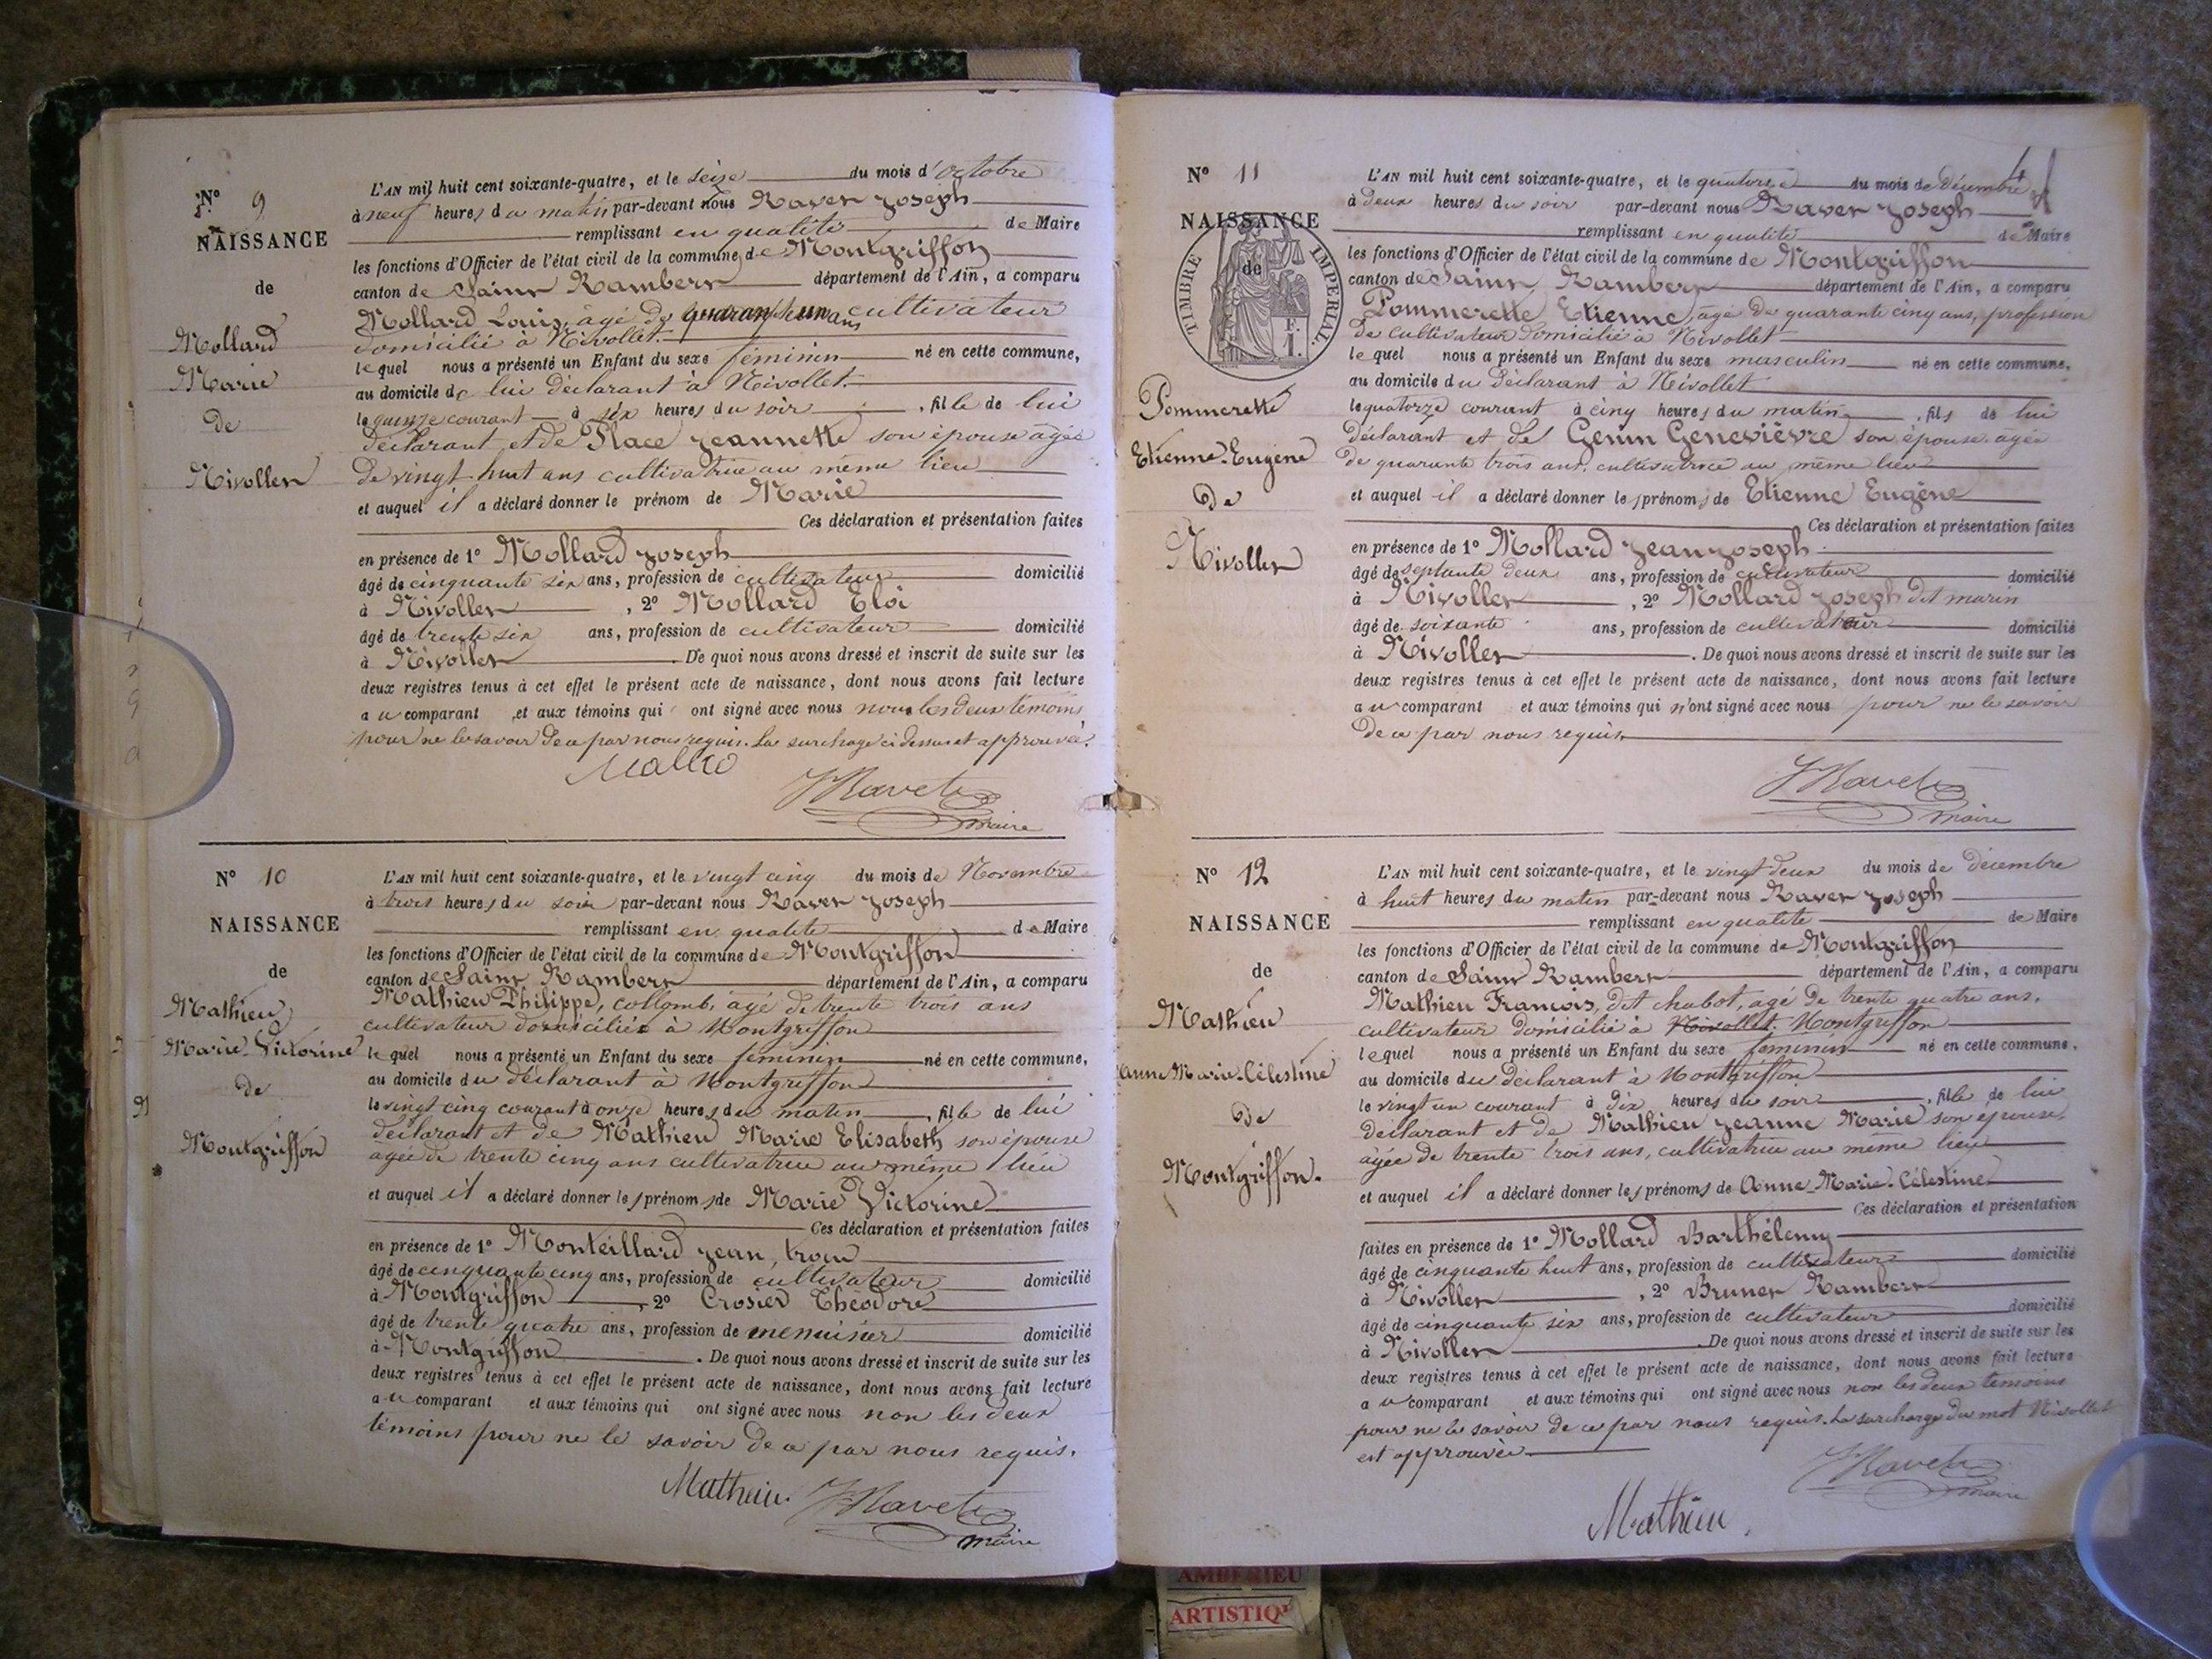 N° 9
NAISSANCE
de
Mollard
Marie
de
Nivollet
L'AN mil huit cent soixante-quatre, et le seize du mois d'octobre
à neuf heures du matin par-devant nous Ravet Joseph
remplissant en qualité de Maire
les fonctions d'Officier de l'état civil de la commune de Montgriffon
canton de Saint Rambert département de l'Ain, a comparu
Mollard Louis, âgé de quarante un ans cultivateur
domicilié à Nivollet.
lequel nous a présenté un Enfant du sexe féminin né en cette commune,
au domicile de lui déclarant à Nivollet.
le quinze courant à six heures du soir, fille de lui
déclarant et de Place Jeannette son épouse âgée
de vingt huit ans cultivatrice au même lieu
et auquel il a déclaré donner le prénom de Marie
Ces déclaration et présentation faites
en présence de 1° Mollard Joseph
âgé de cinquante six ans, profession de cultivateur domicilié
à Nivollet, 2° Mollard Eloi
âgé de trente six ans, profession de cultivateur domicilié
à Nivollet. De quoi nous avons dressé et inscrit de suite sur les
deux registres tenus à cet effet le présent acte de naissance, dont nous avons fait lecture
au comparant et aux témoins qui ont signé avec nous non les deux témoins
pour ne le savoir de ce par nous requis. La surcharge ci dessus est approuvée.
JRavet
maire
N° 10
NAISSANCE
de
Mathieu
Marie-Victorine
de
Montgriffon
L'AN mil huit cent soixante-quatre, et le vingt cinq du mois de Novembre
à trois heures du soir par-devant nous Ravet Joseph
remplissant en qualité de Maire
les fonctions d'Officier de l'état civil de la commune de Montgriffon
canton de Saint Rambert département de l'Ain, a comparu
Mathieu Philippe, collomb, âgé de trente trois ans
cultivateur domicilié à Montgriffon
lequel nous a présenté un Enfant du sexe féminin né en cette commune,
au domicile du déclarant à Montgriffon
le vingt cinq courant à onze heures du matin, fille de lui
déclarant et de Mathieu Marie Elisabeth son épouse
âgée de trente cinq ans cultivatrice au même lieu
et auquel il a déclaré donner les prénoms de Marie Victorine
Ces déclaration et présentation faites
en présence de 1° Monteillard Jean,
âgé de cinquante cinq ans, profession de cultivateur domicilié
à Montgriffon, 2° Crosier Théodore
âgé de trente quatre ans, profession de menuisier domicilié
à Montgriffon. De quoi nous avons dressé et inscrit de suite sur les
deux registres tenus à cet effet le présent acte de naissance, dont nous avons fait lecture
au comparant et aux témoins qui ont signé avec nous non les deux
témoins pour ne le savoir de ce par nous requis.
Mathieu. JRavet
maire
N° 11
NAISSANCE
de
TIMBRE IMPERIAL
F.
1.
Pommerette
Etienne-Eugène
de
Nivollet
L'AN mil huit cent soixante-quatre, et le quatorze du mois de Décembre
à deux heures du soir par-devant nous Ravet Joseph
remplissant en qualité de Maire
les fonctions d'Officier de l'état civil de la commune de Montgriffon
canton de Saint Rambert département de l'Ain, a comparu
Pommerette Etienne, âgé de quarante cinq ans, profession
de cultivateur domicilié à Nivollet
lequel nous a présenté un Enfant du sexe masculin né en cette commune,
au domicile du déclarant à Nivollet
le quatorze courant à cinq heures du matin, fils de lui
déclarant et de Genin Geneviève son épouse âgée
de quarante trois ans, cultivatrice au même lieu
et auquel il a déclaré donner les prénoms de Etienne Eugène
Ces déclaration et présentation faites
en présence de 1° Mollard Jean Joseph
âgé de septante deux ans, profession de cultivateur domicilié
à Nivollet, 2° Mollard Joseph dit marin
âgé de soixante ans, profession de cultivateur domicilié
à Nivollet. De quoi nous avons dressé et inscrit de suite sur les
deux registres tenus à cet effet le présent acte de naissance, dont nous avons fait lecture
au comparant et aux témoins qui n'ont signé avec nous pour ne le savoir
de ce par nous requis
JRavet
maire
N° 12
NAISSANCE
de
Mathieu
Anne-Marie-Célestine
de
Montgriffon.
L'AN mil huit cent soixante-quatre, et le vingt deux du mois de décembre
à huit heures du matin par-devant nous Ravet Joseph
remplissant en qualité de Maire
les fonctions d'Officier de l'état civil de la commune de Montgriffon
canton de Saint Rambert département de l'Ain, a comparu
Mathieu François, dit chabot, âgé de trente quatre ans,
cultivateur domicilié à Nivollet. Montgriffon
lequel nous a présenté un Enfant du sexe féminin né en cette commune,
au domicile du déclarant à Montgriffon
le vingt un courant à dix heures du soir, fille de lui
déclarant et de Mathieu Jeanne Marie son épouse,
âgée de trente trois ans, cultivatrice au même lieu
et auquel il a déclaré donner les prénoms de Anne-Marie-Célestine
Ces déclaration et présentation
faites en présence de 1° Mollard Barthélemy
âgé de cinquante huit ans, profession de cultivateur domicilié
à Nivollet, 2° Brunet Rambert
âgé de cinquante six ans, profession de cultivateur domicilié
à Nivollet. De quoi nous avons dressé et inscrit de suite sur les
deux registres tenus à cet effet le présent acte de naissance, dont nous avons fait lecture
au comparant et aux témoins qui ont signé avec nous non les deux témoins
pour ne le savoir de ce par nous requis. La surcharge du mot Nivollet
est approuvée
JRavet
maire
Mathieu.
AMBERIEU
ARTISTIQ